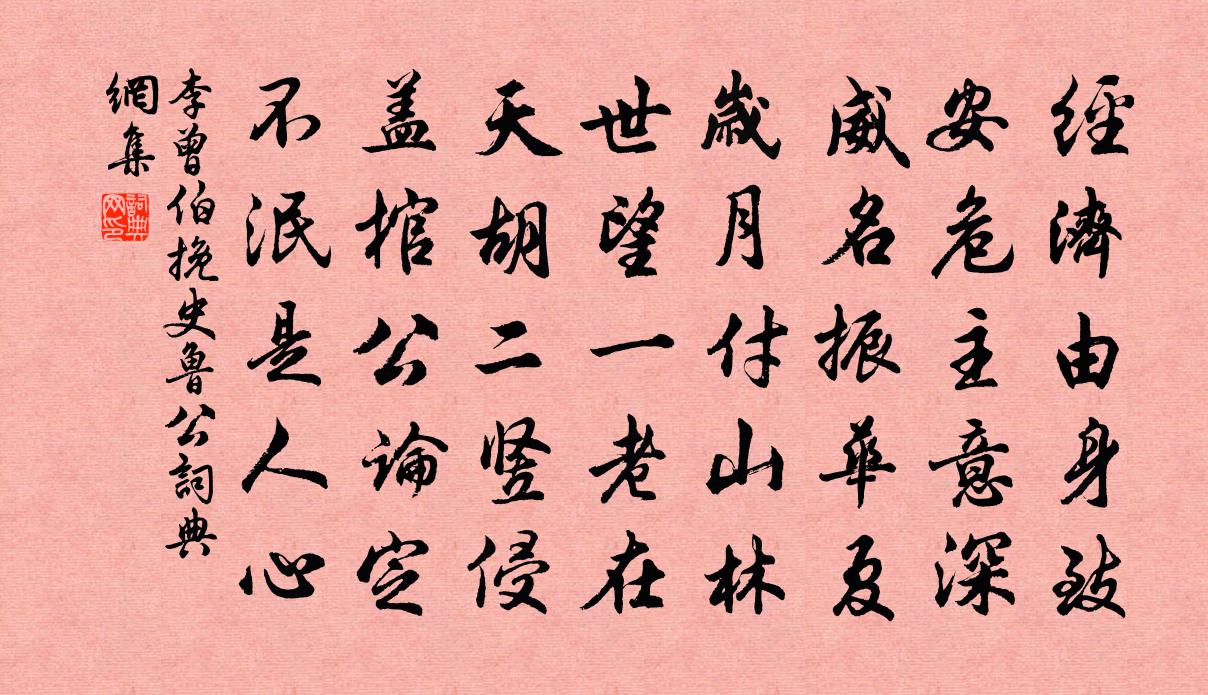 經濟由身致
安危主意深
威名振華夏
歲月付山林
世望一老在
天胡二竖侵
盖棺公論定
不泯是人心
李曾伯挽史魯公詞典
網集
詞典网印